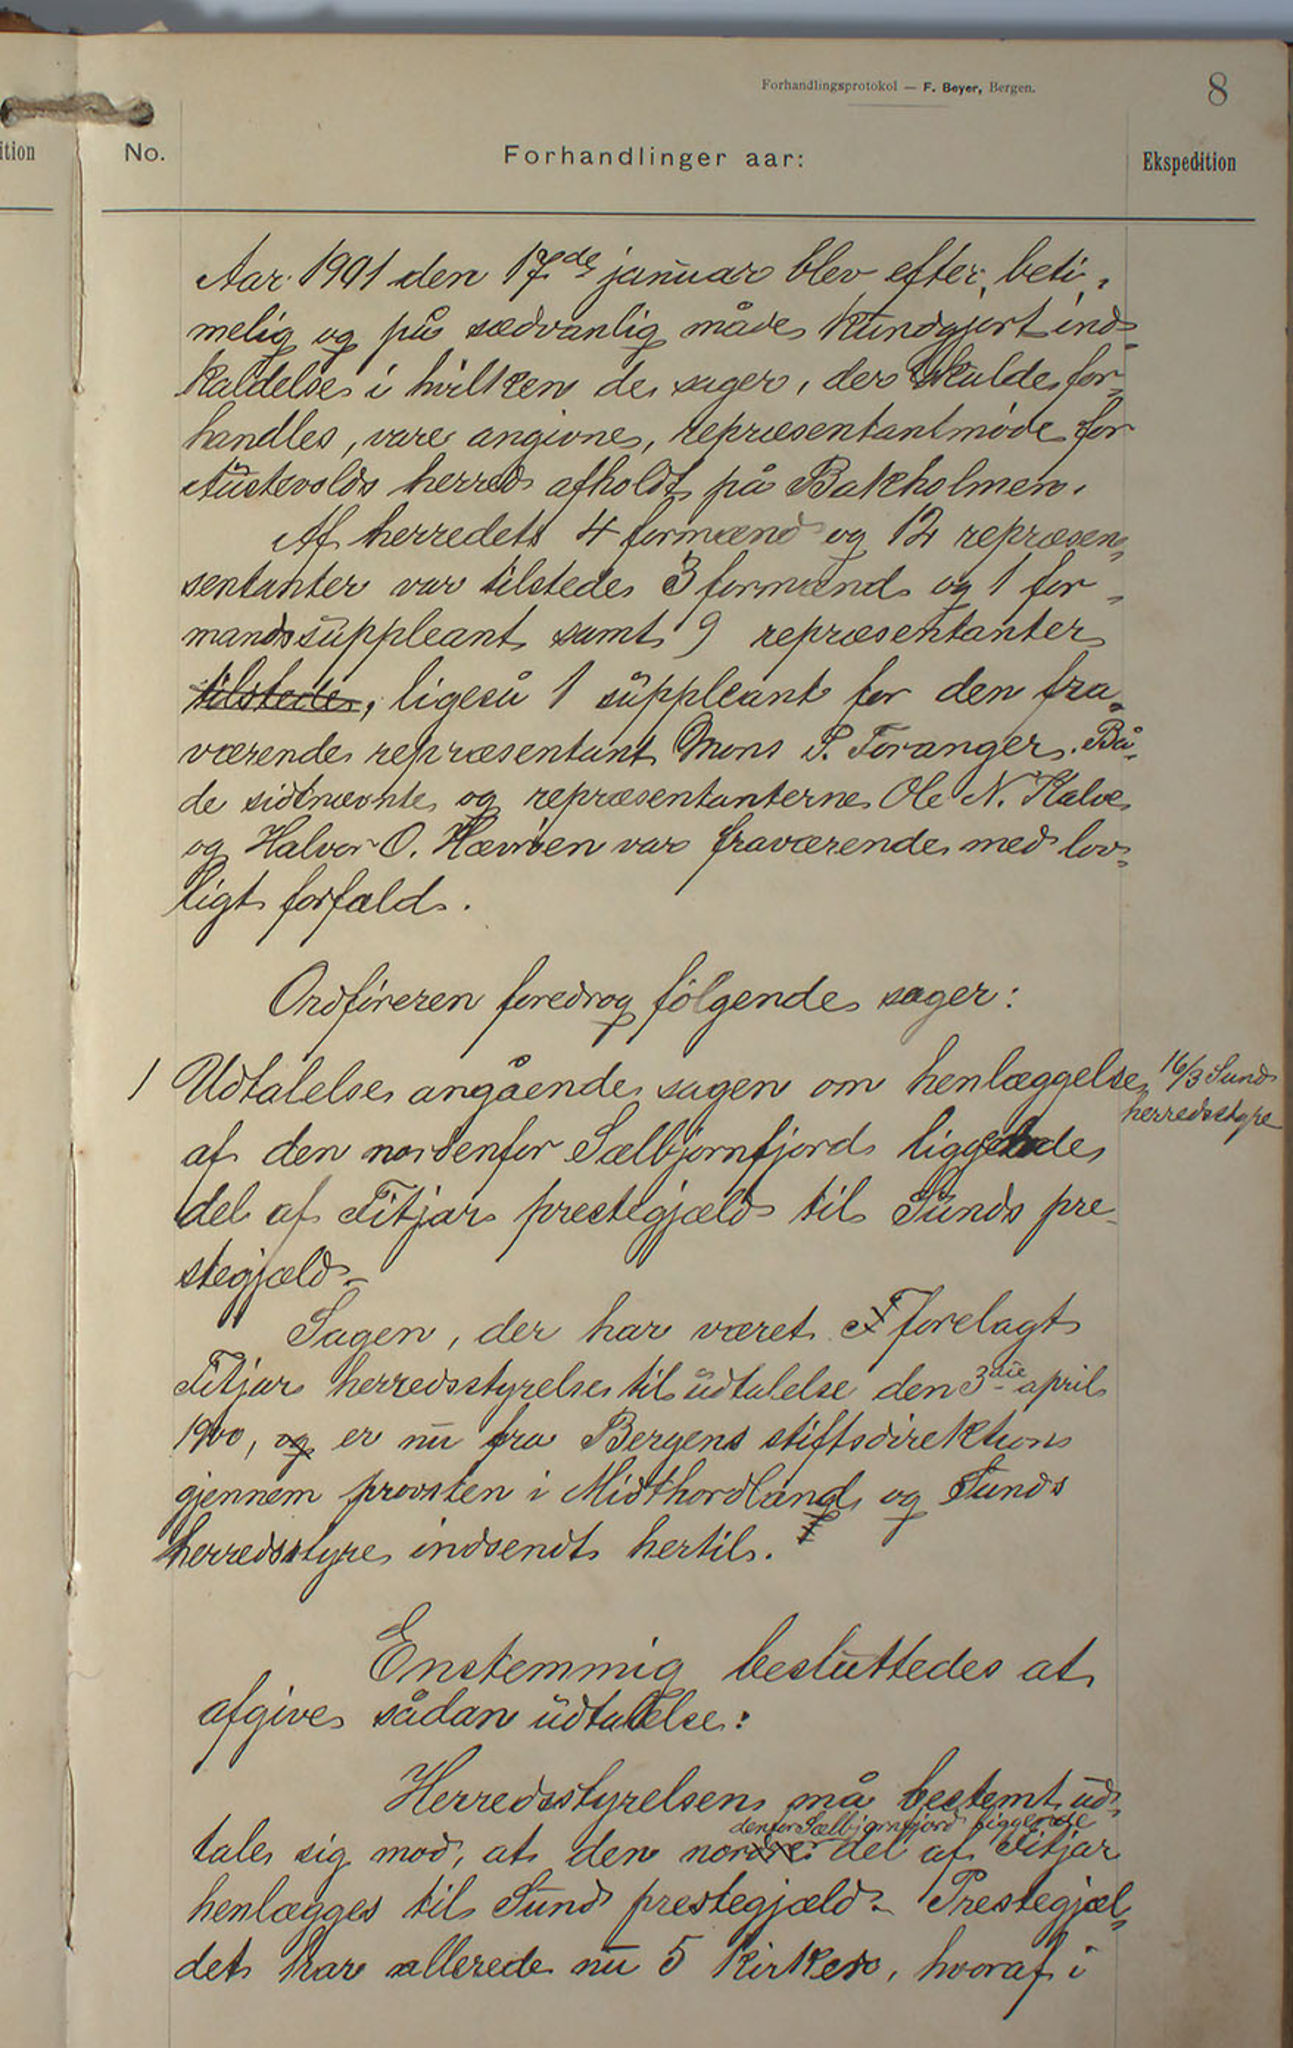 Forhandlingsprotokol — F. Beyer, Bergen.
8
ition
No.
Forhandlinger aar:
Ekspedition
Aar 1901 den 17de januar blev efter, beti-
melig og på sædvanlig måde kundgjort ind-
kaldelse i hvilken de sager, der skulde for-
handles, vare angivne, repræsentantmøde for
Austevolds herred afholdt på Bakholmen.
Af herredets 4 formænd og 12 repræsen-
sentanter var tilstede 3 formænd og 1 for-
mandssuppleant samt 9 repræsentanter
tilstede, ligeså 1 suppleant for den fra-
værende repræsentant Mons P. Toranger. Bå-
de sidtnævnte og repræsentanterne Ole N. Kalve
og Halvor O. Hævrøen var fraværende med lov-
ligt forfald.
Ordføreren foredrog følgende sager:
1 Udtalelse angående sagen om henlæggelse
16/3 Sunds
herredsstyre
af den nordenfor Sælbjørnfjord liggende
del af Fitjar prestegjæld til Sunds pre-
stegjæld.
Sagen, der har været F forelagt
Fitjar herredsstyrelse til udtalelse den 3die april
1900, og er nu fra Bergens stiftsdirektion
gjennem provsten i Midthordland og Sunds
herredsstyre indsendt hertil.
Enstemmig besluttedes at
afgive sådan udtalelse:
Herredsstyrelsen må bestemt ud-
denfor Sælbjørnfjord liggende
tale sig mod, at den nordre del af Fitjar
henlægges til Sund prestegjæld. Prestegjæl-
det har allerede nu 5 kirker, hvoraf i